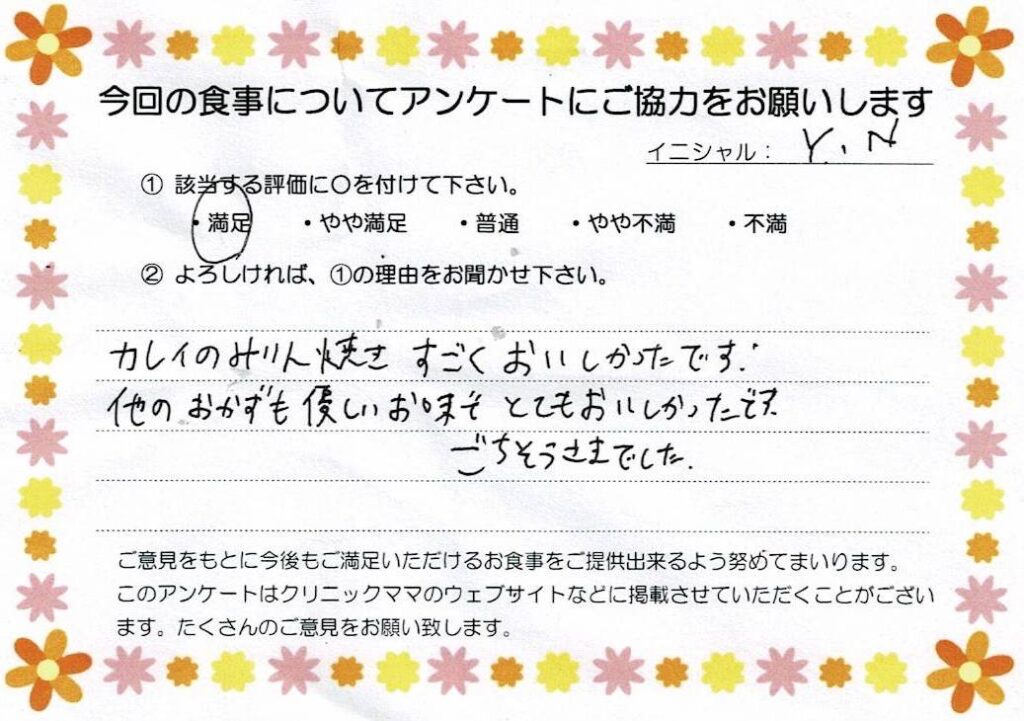 今回の食事についてアンケートにご協力をお願いします
イニシャル： Y.N
① 該当する評価に〇を付けて下さい。
・満足 ・やや満足 ・普通 ・やや不満 ・不満
② よろしければ、①の理由をお聞かせ下さい。
カレイのみりん焼き すごく おいしかったです.
他の おかずも 優しい お味で とてもおいしかったです.
ごちそうさまでした.
ご意見をもとに今後もご満足いただけるお食事をご提供出来るよう努めてまいります。
このアンケートはクリニックママのウェブサイトなどに掲載させていただくことがござい
ます。たくさんのご意見をお願い致します。